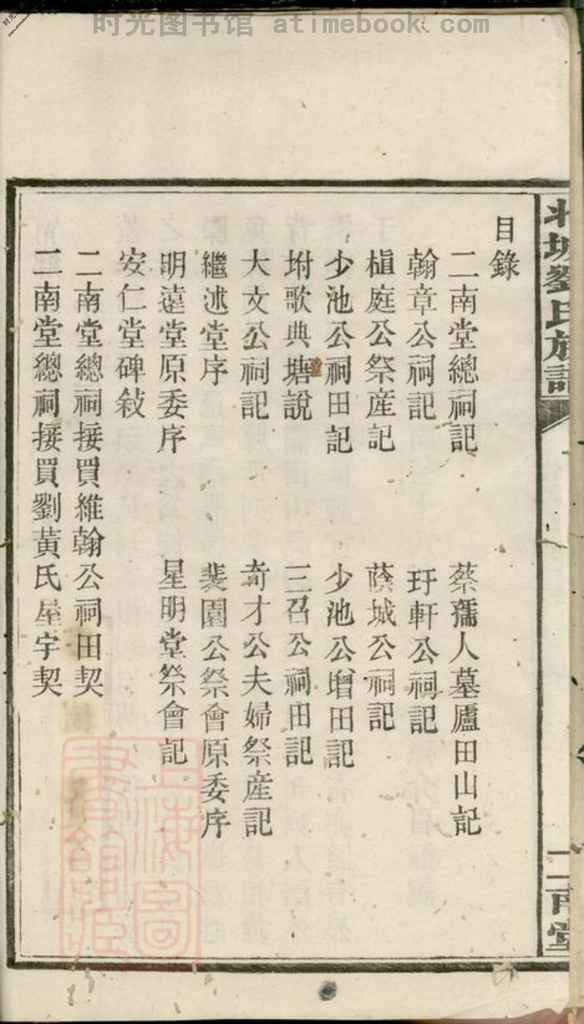 时光图书馆 atimebook.com
目錄
二南堂總祠記 蔡孺人墓廬田山記
翰章公祠記 玗軒公祠記
植庭公祭産記 蔭城公祠記
少池公祠田記 少池公增田記
坿歌典塘說 三召公祠田記
大文公祠記 奇才公夫婦祭産記
繼述堂序 裴園公祭會原委序
明遠堂原委序 星明堂祭會記
安仁堂碑敍
二南堂總祠接買維翰公祠田契
二南堂總祠接買劉黃氏屋宇契
城劉氏族譜
二南堂
上海圖書館藏